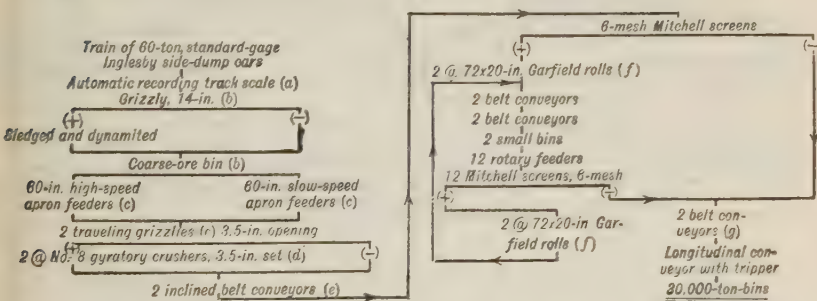 Train of 60-ton, standard-gage
Inglesby side-dump cars
Automatic recording track scale (a)
Grizzly, 14-in. (b)
(+) (−)
Sledged and dynamited
Coarse-ore bin (b)
60-in. high-speed 60-in. slow-speed
apron feeders (c) apron feeders (c)
2 traveling grizzlies (c) 3.5-in. opening
(+) (−)
2 @ No. 8 gyratory crushers, 3.5-in. set (d)
2 inclined belt conveyors (e)
6-mesh Mitchell screens
(+) (−)
2 @ 72x20-in. Garfield rolls (f)
2 belt conveyors
2 belt conveyors
2 small bins
12 rotary feeders
12 Mitchell screens, 6-mesh
(+) (−)
2 @ 72x20-in Gar-
field rolls (f)
2 belt con-
veyors (g)
Longitudinal con-
veyor with tripper
30,000-ton-bins